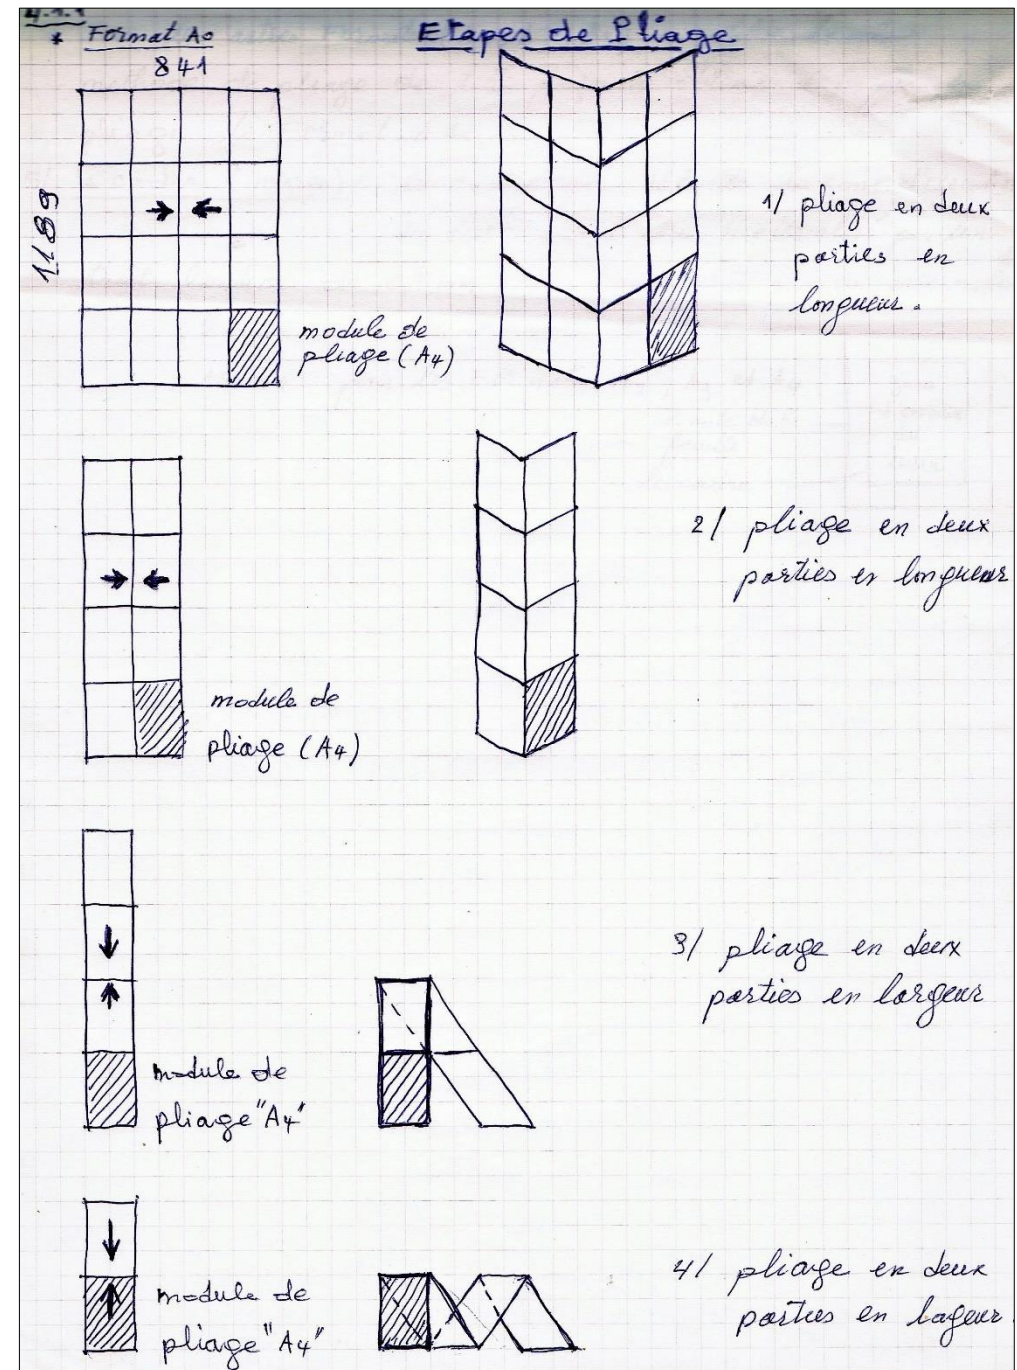 4.1.1
* Format A0
Etapes de Pliage
841
1189
module de
pliage (A4)
1/ pliage en deux
parties en
longueur.
2/ pliage en deux
parties en longueur
module de
pliage (A4)
3/ pliage en deux
parties en largeur
module de
pliage "A4"
4/ pliage en deux
parties en lageur
module de
pliage "A4"